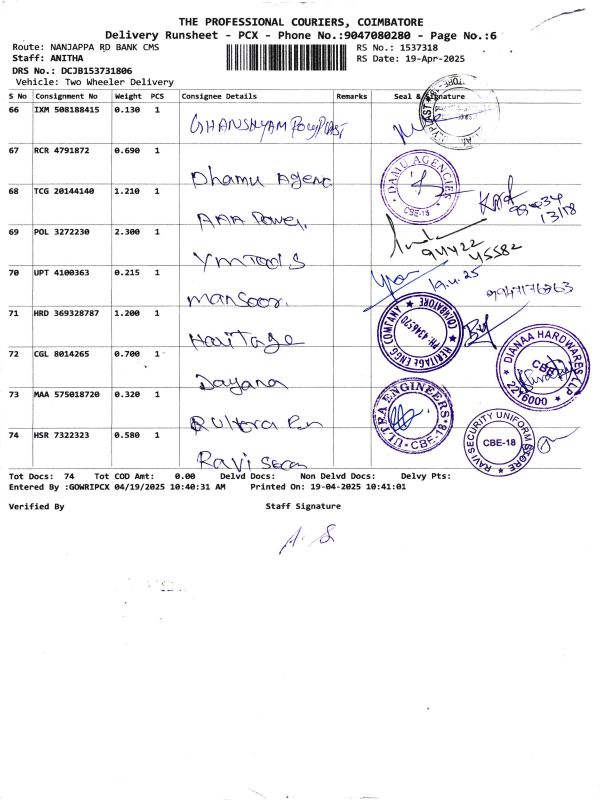 THE PROFESSIONAL COURIERS, COIMBATORE
Delivery Runsheet - PCX - Phone No.:9047080280 - Page No.:6
Route: NANJAPPA RD BANK CMS RS No.: 1537318
Staff: ANITHA RS Date: 19-Apr-2025
DRS No.: DCJB153731806
Vehicle: Two Wheeler Delivery
S No Consignment No Weight PCS Consignee Details Remarks Seal & Signature
66 IXM 508188415 0.130 1
GHANSHYAM Polyplast
67 RCR 4791872 0.690 1
Dhamu Agenc
DAMU AGENCIES CBE-18
68 TCG 20144140 1.210 1
AAA Power
69 POL 3272230 2.300 1
94422 45582
YM Tools
70 UPT 4100363 0.215 1
19.4.25
mansoor.
71 HRD 369328787 1.200 1
HERITAGE ENGG COMPANY COIMBATORE PH: 4346570
Haritage
72 CGL 8014265 0.700 1
DIANAA HARDWARES LLP CBE 2216000
Dayana
73 MAA 575018720 0.320 1
ULTRA ENGINEERS CBE-18
Rultera En
74 HSR 7322323 0.580 1
RAVI SECURITY UNIFORM STORE CBE-18
Ravi secan
Tot Docs: 74 Tot COD Amt: 0.00 Delvd Docs: Non Delvd Docs: Delvy Pts:
Entered By :GOWRIPCX 04/19/2025 10:40:31 AM Printed On: 19-04-2025 10:41:01
Verified By Staff Signature
A. S